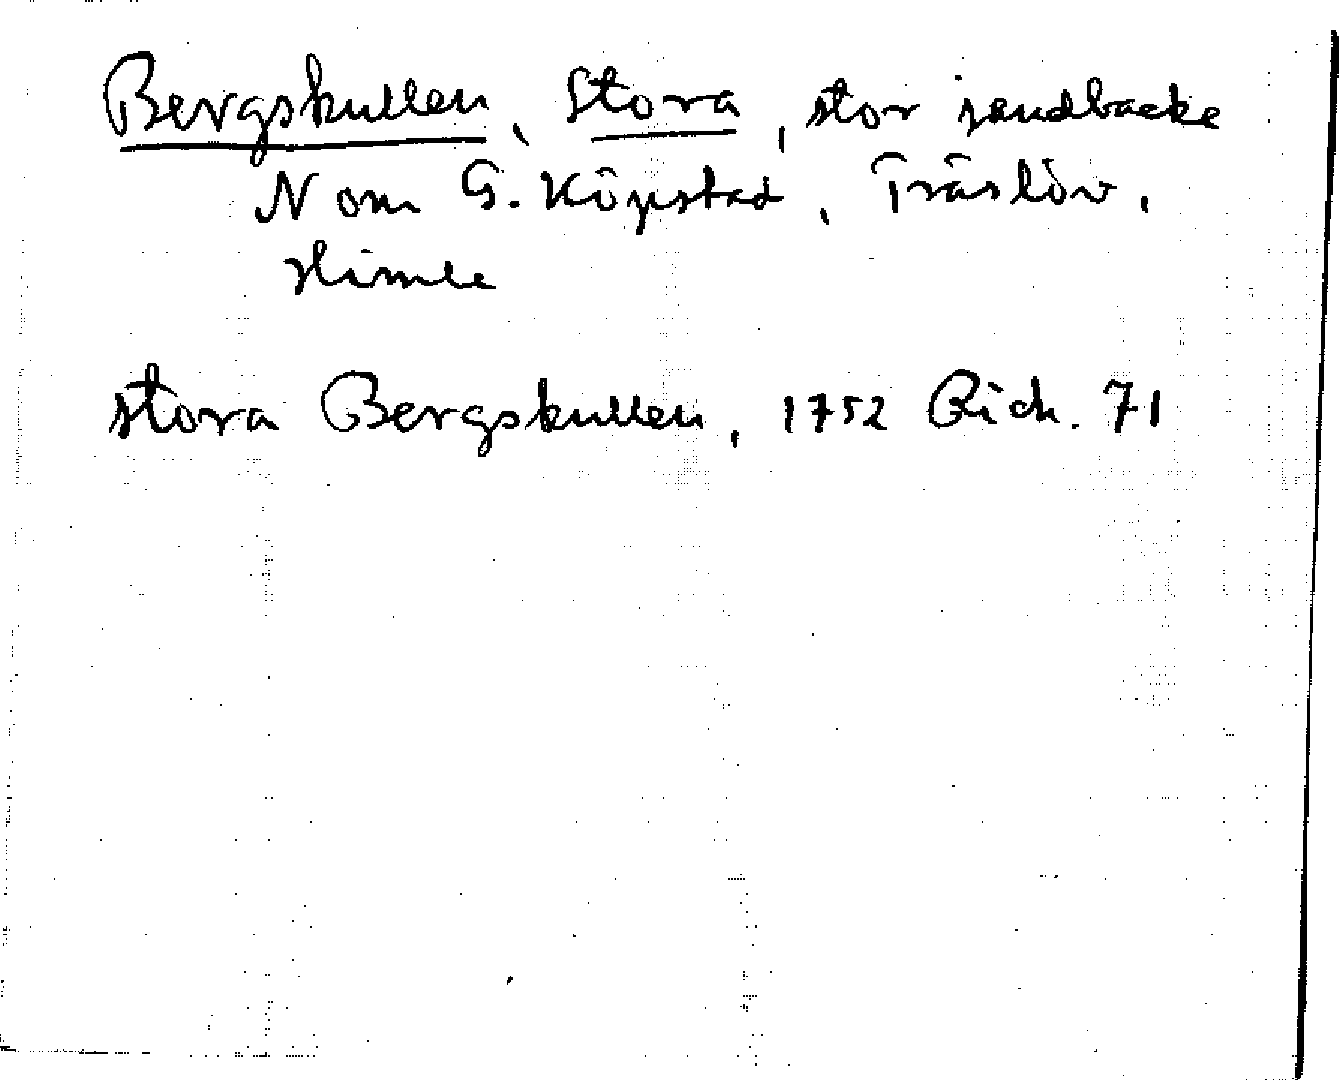 Bergskullen, Stora, stor sandbacke
N om G. Köpstad, Träslöv,
Himle
stora Bergskullen, 1752 Rich. 71